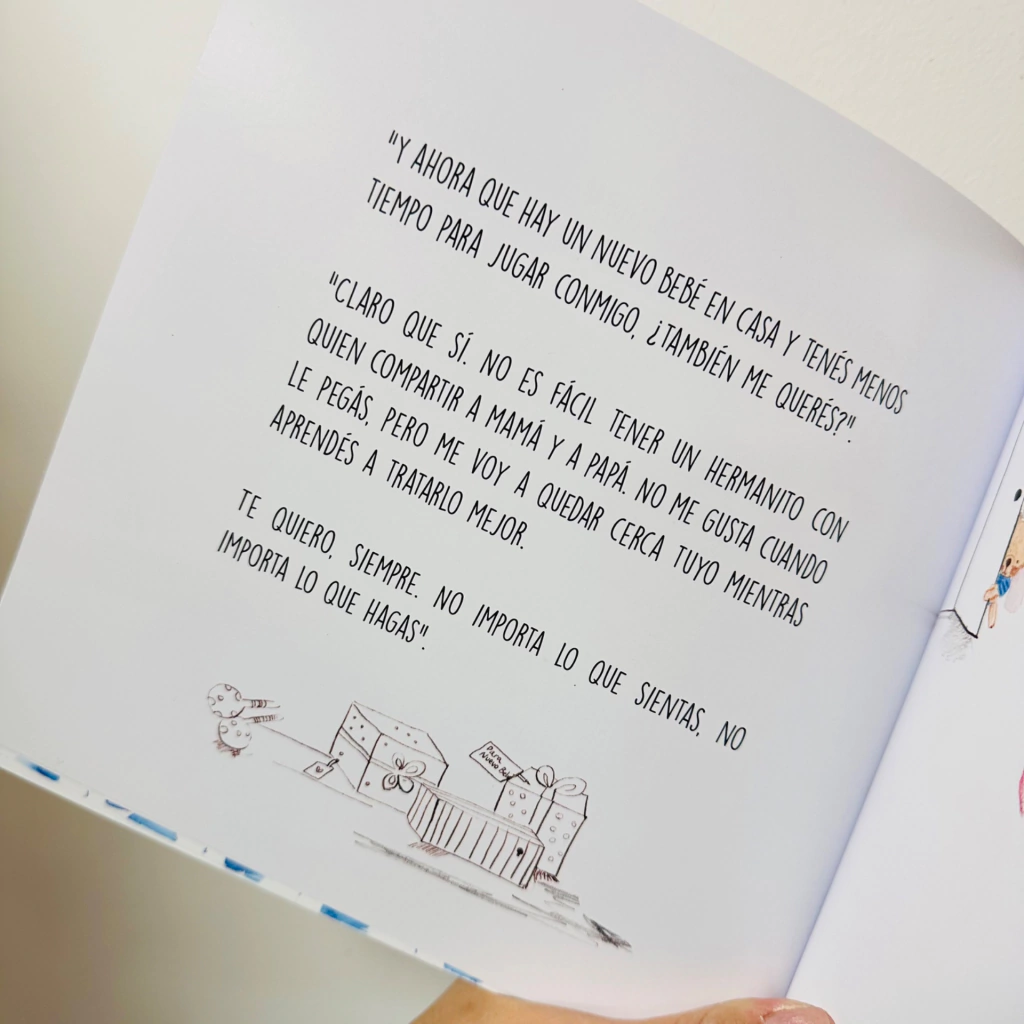 "Y AHORA QUE HAY UN NUEVO BEBÉ EN CASA Y TENÉS MENOS
TIEMPO PARA JUGAR CONMIGO, ¿TAMBIÉN ME QUERÉS?".
"CLARO QUE SÍ. NO ES FÁCIL TENER UN HERMANITO CON
QUIEN COMPARTIR A MAMÁ Y A PAPÁ. NO ME GUSTA CUANDO
LE PEGÁS, PERO ME VOY A QUEDAR CERCA TUYO MIENTRAS
APRENDÉS A TRATARLO MEJOR.
TE QUIERO, SIEMPRE. NO IMPORTA LO QUE SIENTAS, NO
IMPORTA LO QUE HAGAS".
Para
Nuevo